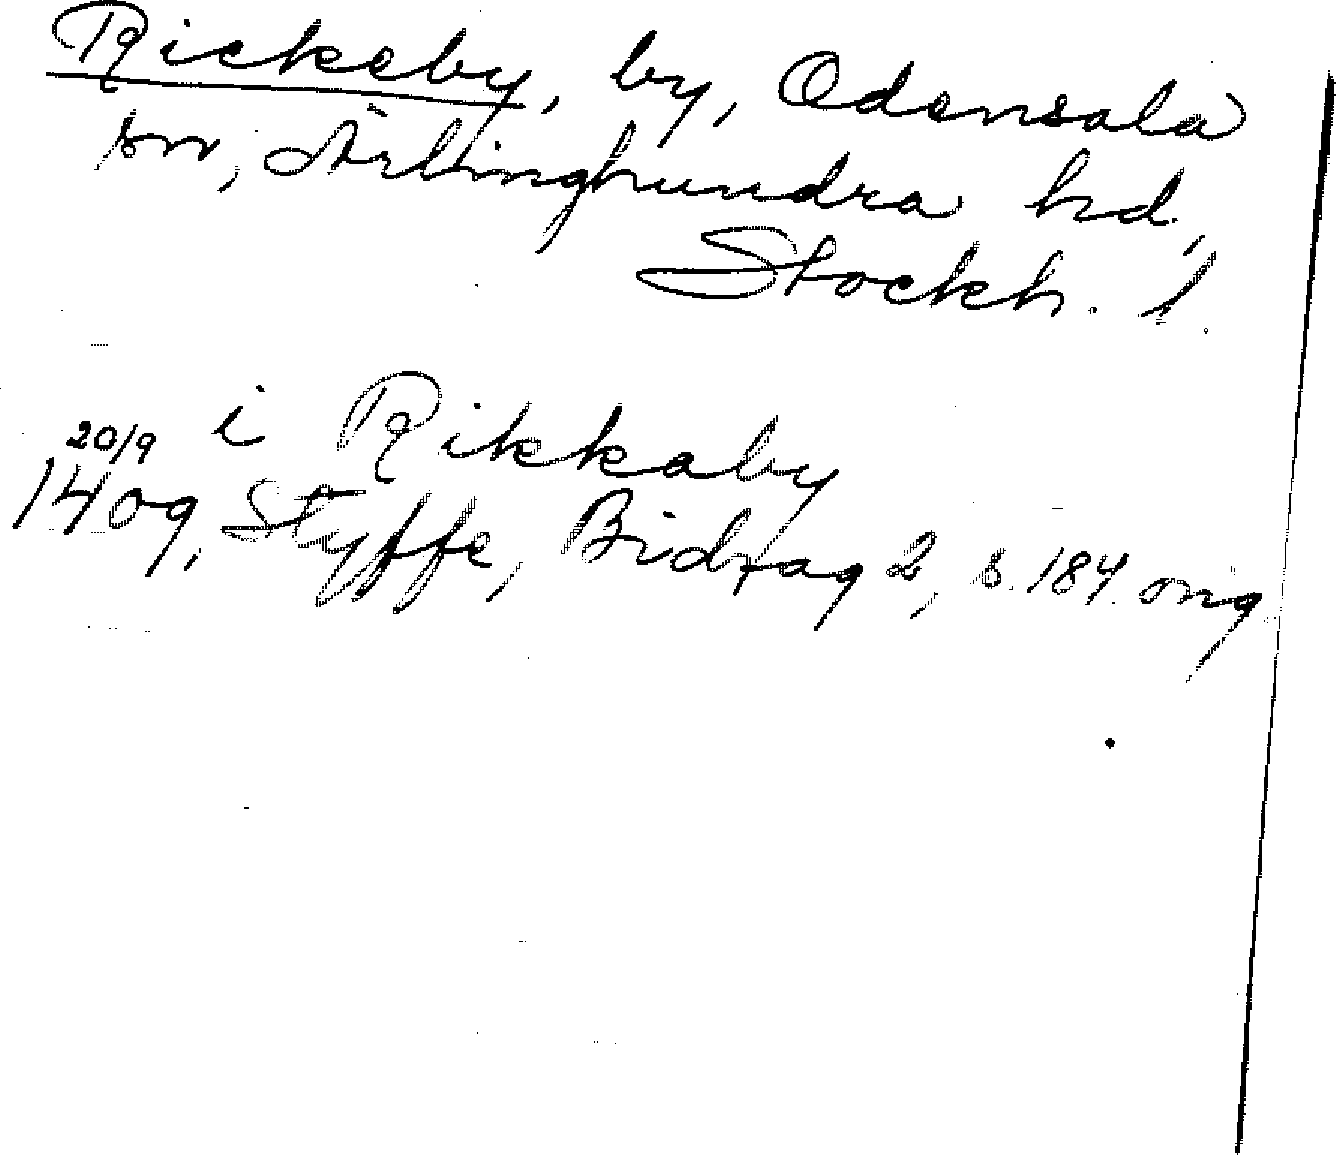 Rickeby, by, Odensala
sn, Ärlinghundra hd,
Stockh. l.
i Rikkaby
20/9
1409, Styffe, Bidrag 2, s. 184 orig